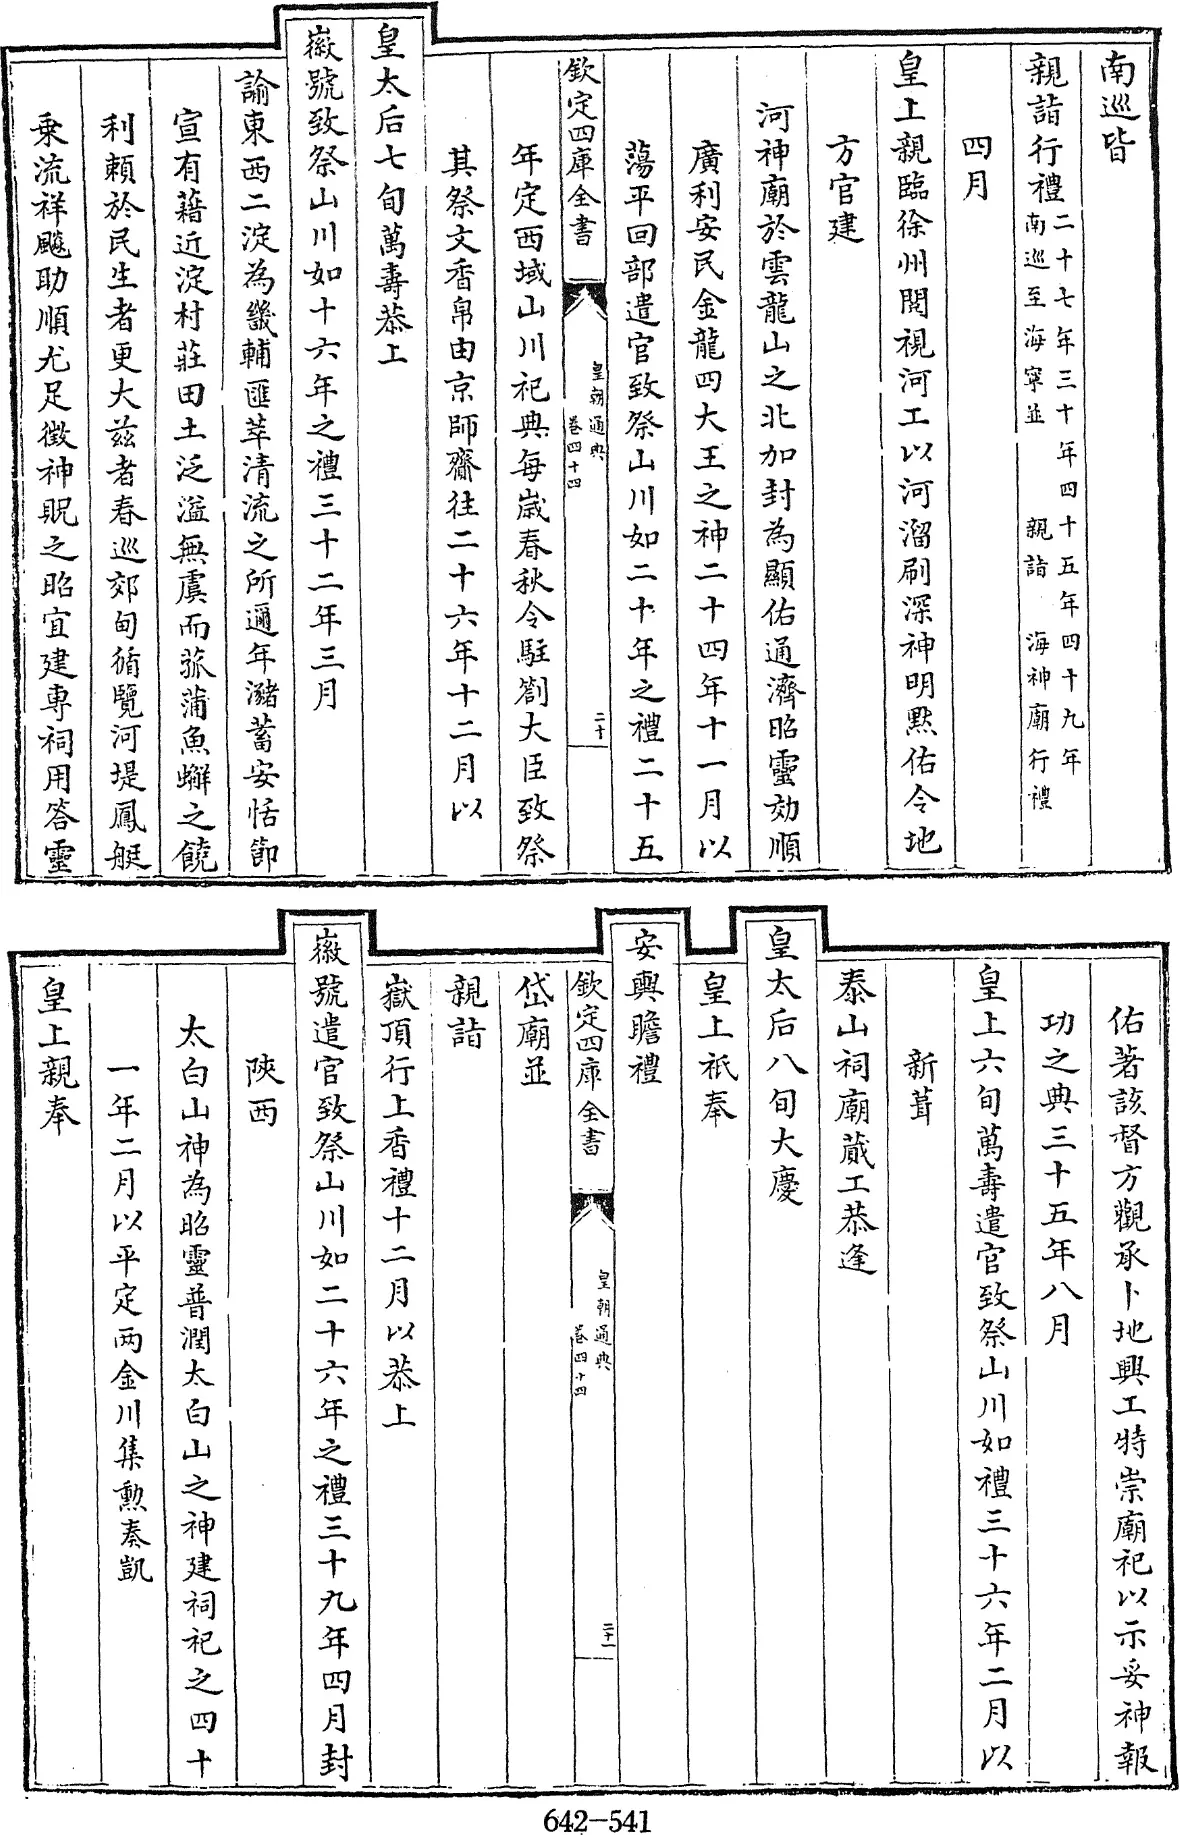 南巡皆
親詣行禮二十七年三十年四十五年四十九年
南巡至海寧並　親詣　海神廟行禮
四月
皇上親臨徐州閱視河工以河溜刷深神明黙佑令地
方官建
河神廟於雲龍山之北加封為顯佑通濟昭靈効順
廣利安民金龍四大王之神二十四年十一月以
蕩平回部遣官致祭山川如二十年之禮二十五
欽定四庫全書
皇朝通典
卷四十四
二十
年定西域山川祀典每嵗春秋令駐劄大臣致祭
其祭文香帛由京師齎往二十六年十二月以
皇太后七旬萬壽恭上
徽號致祭山川如十六年之禮三十二年三月
諭東西二淀為畿輔匯萃清流之所邇年瀦蓄安恬節
宣有藉近淀村莊田土泛溢無虞而菰蒲魚蠏之饒
利頼於民生者更大兹者春巡郊甸循覽河堤鳳艇
乗流祥飈助順尤足徵神貺之昭宜建專祠用答靈
佑著該督方觀承卜地興工特崇廟祀以示妥神報
功之典三十五年八月
皇上六旬萬壽遣官致祭山川如禮三十六年二月以
新葺
泰山祠廟蕆工恭逢
皇太后八旬大慶
皇上祇奉
安輿瞻禮
欽定四庫全書
皇朝通典
卷四十四
二十一
岱廟並
親詣
嶽頂行上香禮十二月以恭上
徽號遣官致祭山川如二十六年之禮三十九年四月封
陜西
太白山神為昭靈普潤太白山之神建祠祀之四十
一年二月以平定两金川集勲奏凱
皇上親奉
642-541